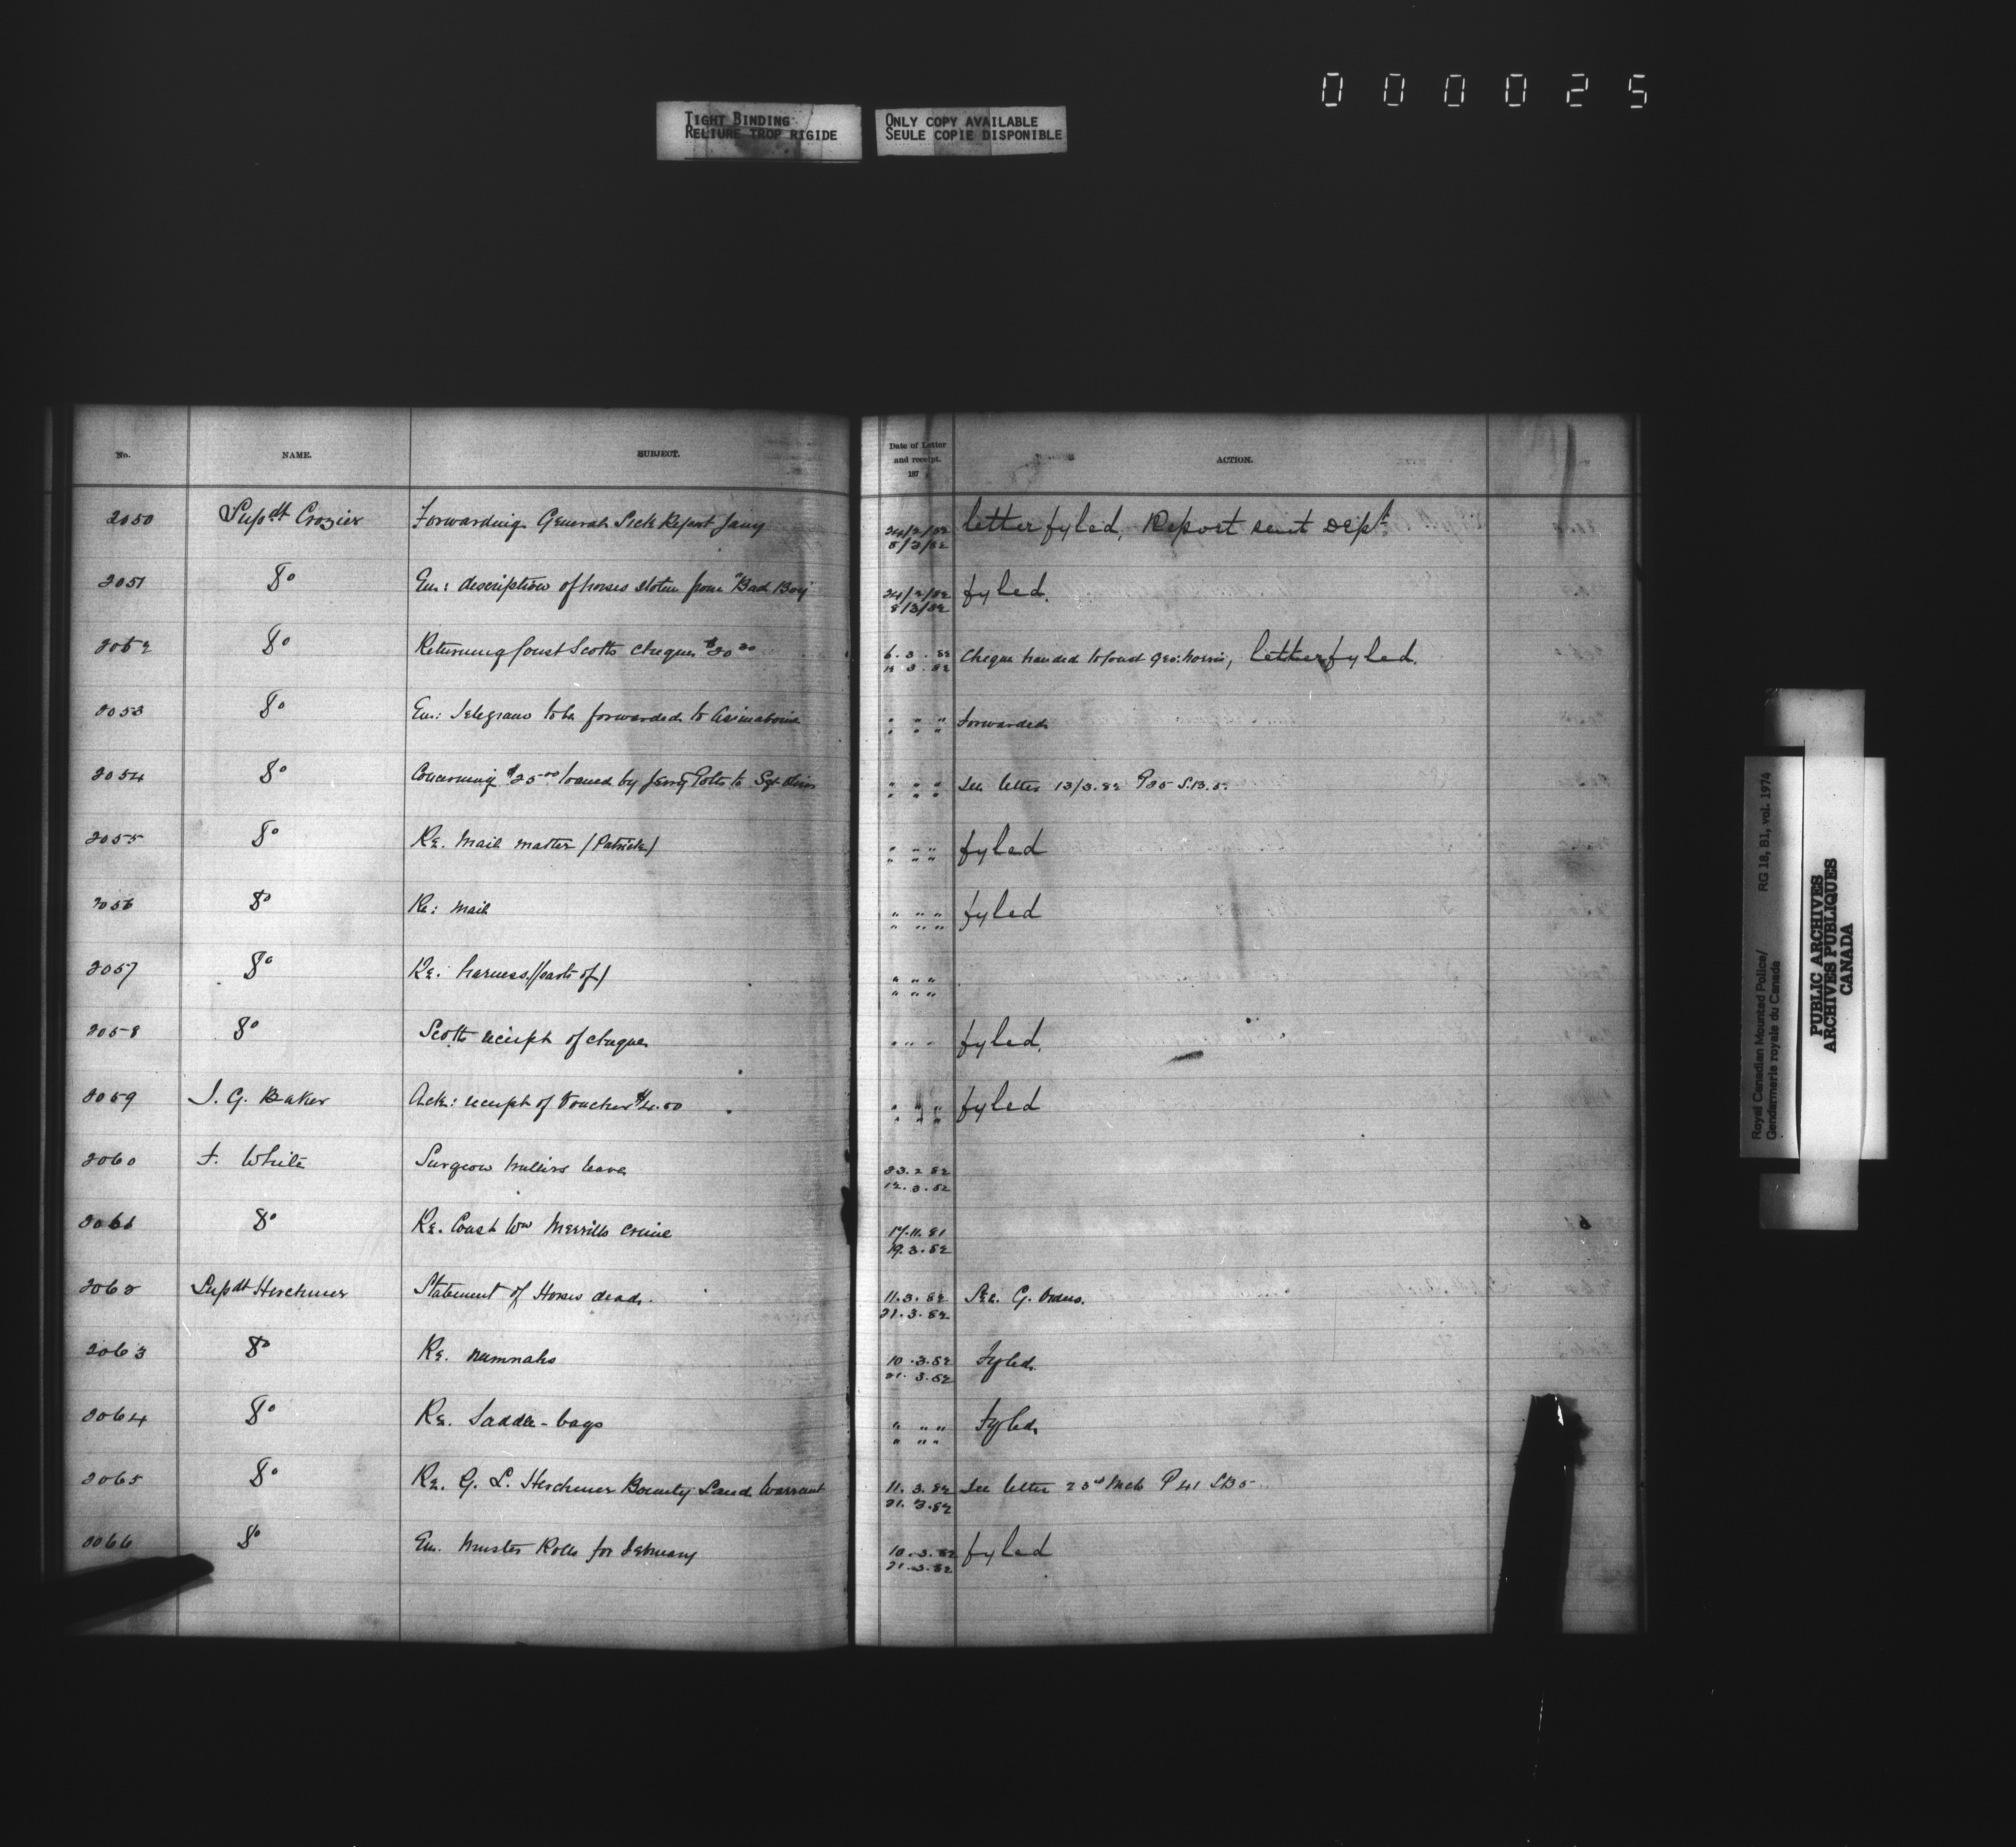 000025
TIGHT BINDING
RELIURE TROP RIGIDE
ONLY COPY AVAILABLE
SEULE COPIE DISPONIBLE
No. NAME. SUBJECT. Date of Letter and receipt. 187 ACTION.
2050 Supdt Crozier Forwarding General Sick Report Jany 24/2/82 8/3/82 letter fyled, Report sent Dept
2051 Do En: description of horses stolen from "Bad Boy" 24/2/82 8/3/82 fyled.
2052 Do Returning Const Scotts cheque $20 6.3.82 12.3.82 Cheque handed to Const Geo: Norris, letter fyled.
2053 Do En: Telegram to be forwarded to Assinaboine " " " " " " Forwarded
2054 Do Concerning $25.00 loaned by Jerry Potts to Sgt " " " " " " See letter 13/3.82 P35 S.B.5.
2055 Do Re. Mail matter (Patrick) " " " " " " fyled
2056 Do Re: Mail " " " " " " fyled
2057 Do Re: harness (parts of) " " " " " "
2058 Do Scotts reciept of cheque " " " fyled.
2059 I. G. Baker Ack: receipt of Voucher $4.50 " " " " " " fyled
2060 F. White Surgeon Millers leave 23.2.82 12.3.82
2061 Do Re. Const Wm Merrills crime 17.11.81 19.3.82
2062 Supdt Herchmer Statement of Horses dead. 11.3.82 21.3.82 See. G. Orders.
2063 Do Re. numnahs 10.3.82 21.3.82 Fyled.
2064 Do Re. Saddle-bags " " " " " " Fyled.
2065 Do Re. G. L. Herchmer Bounty Land Warrant 11.3.82 21.3.82 See letter 23rd Mch P41 LB5
2066 Do En. Muster Rolls for February 10.3.82 21.3.82 fyled
Royal Canadian Mounted Police/ RG 18, B1, vol. 1974
Gendarmerie royale du Canada
PUBLIC ARCHIVES
ARCHIVES PUBLIQUES
CANADA